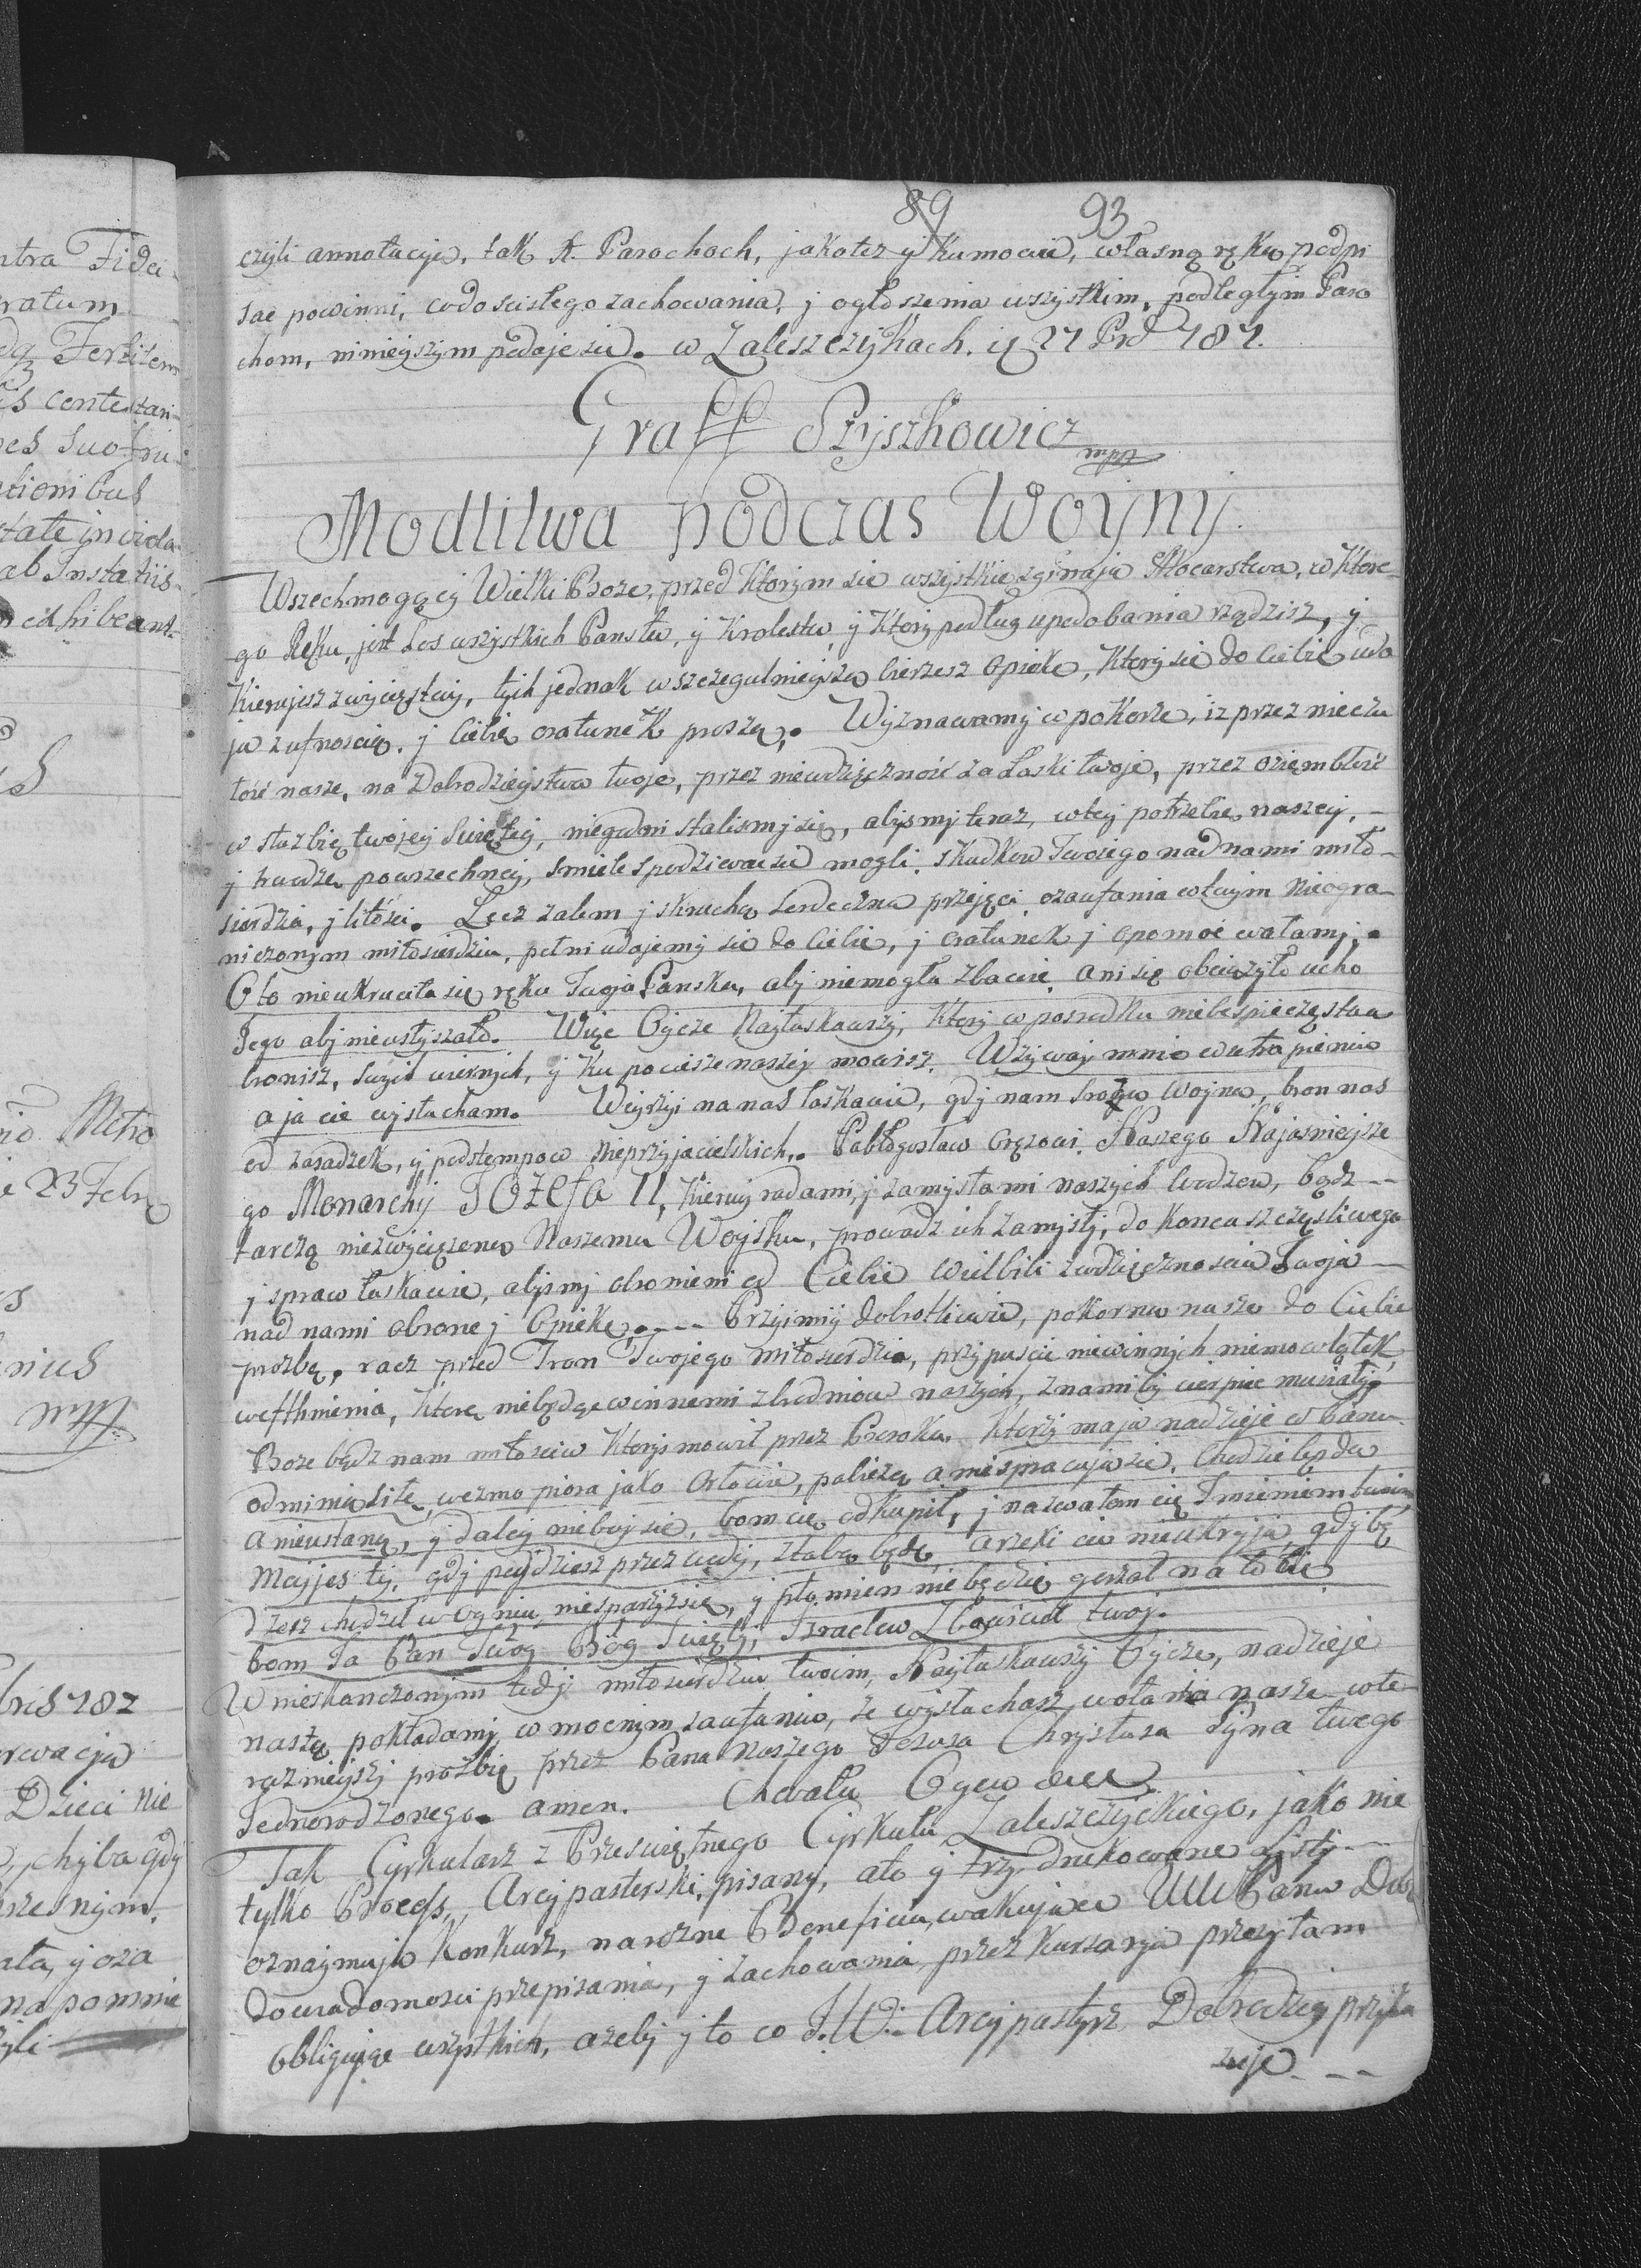 89 93
czyli annotacyę, tak X. Parochoch, jakotez y Kumowie, własną ręką podpi
sac powinni, codo scisłego zachowania, j ogłoszenia wszystkim, podległym Paro
chom, ninieyszym podaje się. w Zaleszczykach. 27 787.
Graff Szyszkowicz mpp
Modlitwa podczas Woyny.
Wszechmogący Wielki Boze, przed Ktorym sie wszystkie zginaja Mocarstwa, w Ktore-
go Ręku, jest Los wszystkich Panstw, y Krolestw, y Ktory podług upodobania rządzisz, y
Kierujesz zwycięstwy, tych jednak w szczegulnieyszą bierzesz Opiekę, Ktorzy sie do Ciebie uda
ja z ufnoscią, j Ciebie oratunek proszą. Wyznawamy w pokorze, iz przez nieczu
łość nasze, na Dobrodzieystwa twoje, przez niewdzięczność za Łaski twoje, przez oziembłość
w służbie twojey Swiętey, niegodni stalismy się, abysmy teraz, wtey potrzebie naszey, -
j trwodze powszechney, smiele spodziewac sie mogli, skutkow Twoiego nad nami miło-
sierdzia, j litości. Lecz zalem j skruchą serdeczna przejęci, ozaufania wtwym nieogra-
niczonym miłosierdziu, pełni udajemy sie do Ciebie, j oratunek j opomoć wołamy.
Oto nieukruciła się ręka Twoja Panska, aby niemogła zbawić, ani się obciązyło ucho
Jego aby nieusłyszało. Więc Oycze Nayłaskawszy, Ktory w posrodku niebespieczęstwa
bronisz, swych wiernych, y Ku pociesze naszey mowisz. Wzyway mnie w utrapieniu
a ja cie wysłucham. Weyrzyi na nas łaskawie, gdy nam srozy Woyna, bron nas
od zasadzek, y podstempow nieprzyjacielskich. Pobłogosław Oręzowi, Naszego Najasnieysze
go Monarchy JOZEfa II, kieruy radami, j zamysłami naszych Wodzow, bądz --
tarczą niezwycięzoną Naszemu Woysku, prowadz ich zamysły, do Konca szczęsliwego
j spraw łaskawie, abysmy obronieni od Ciebie wielbili zwdzięcznoscia Twoja --
nad nami obronę j Opiekę. --- Przyimiy dobrotliwie, pokorna nasze do Ciebie
prozbę, racz przed Tron Twojego miłosierdzia, przypuscic niewinnych niemowlątek
westhnienia, Ktore niebędąc winnemi zbrodniow naszych, z nami by cierpiec musiały
Boze bądz nam miłosciw Ktorys mowił przez Proroka. Ktorzy maja nadzieje w Panu
odmienia siłe, wezmo piora jako Orłowie, pobiezą a niespracuja sie, Chodzic będa
a nieustaną, y daley nieboj sie, bom cie odkupił, j nazwałem cię Imieniem twoim
moyjes ty, gdy poydziesz przez wody, ztobą będę, arzeki cie nieukryja, gdy bę
dzesz chodził w Ogniu niesparzysz sie, y płomien niebędzie gorzał na tobie
bom Ja Pan Twoy Bog Swięty, Izraelow Zbawiciel twoj.
W nieskonczonym tedy miłosierdziu twoim, Nayłaskawszy Oycze, nadzieje
naszę pokładamy w mocnym zaufaniu, że wysłuchasz wołania nasze wte-
raznieyszy prozbie przez Pana Naszego Jezusa Chrystusa Syna twego
Jednorodzonego. amen. Chwała Ogcu
Tak Cyrkularz z Przeswiętnego Cyrkułu Zaleszczyckiego, jako nie
tylko Process, Arcypasterski, pisany, ale y trzy drukowane Listy --
oznaymuja Konkurs, narozne Beneficia, wakująca WW Panu Dob
dowiadomosci przepisania, y zachowania przez Kursarza przesyłam
Obliguiąc wszystkich, azeby y to co J.W. Arcypasterz Dobrodziey przyka
zuje ---
ntra Fidei
ratum
Fertilem
contestari
suo fru-
tionibus
tate inviola
ab Instatiis
exhibeant.
Metro
23 Febr
nius
mpp
bris 787
rwacja
Dzieci nie
chyba gdy
rzesnym.
ata, y oza
napomnie
yli